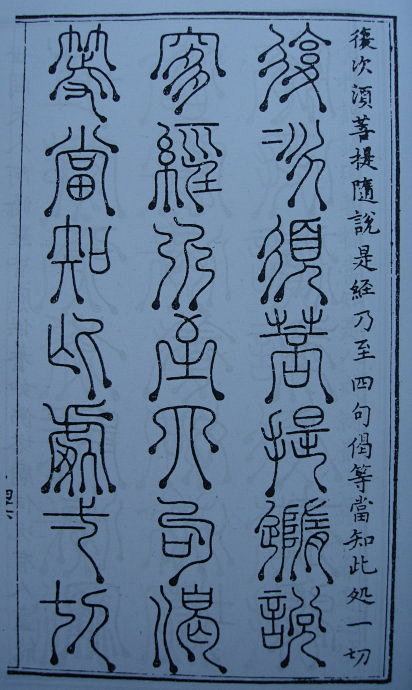 復次須菩提隨說是經乃至四句偈等當知此处一切
復次須菩提隨說
是經乃至四句偈
等當知此處一切